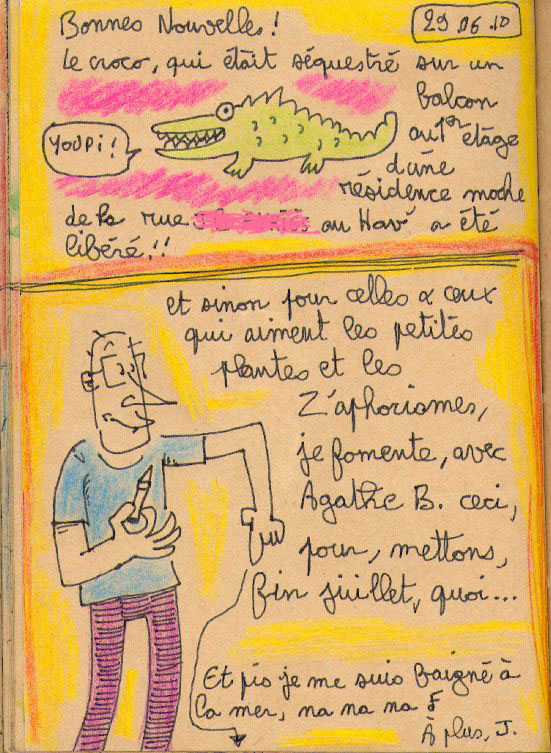 Bonnes Nouvelles!
29.06.10
le croco, qui était séquestré sur un
balcon
YOUPi!
au 1er étage
d'une
résidence moche
de la rue au Havre a été
libéré!!
et sinon pour celles & ceux
qui aiment les petites
plantes et les
Z'aphorismes,
je fomente, avec
Agathe B. ceci,
pour, mettons,
fin juillet, quoi...
Et pis je me suis baigné à
la mer, na na na
À plus, J.